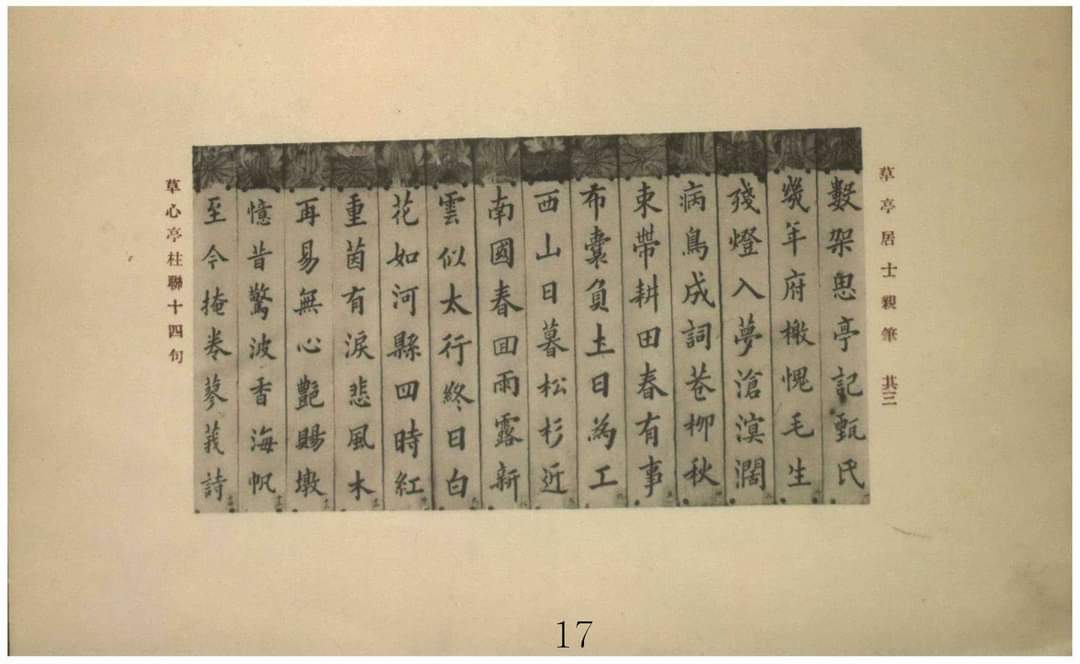 草亭居士親筆 其三
數架思亭記甄氏
幾年府檄愧毛生
殘燈入夢滄溟濶
病鳥成詞菴柳秋
束帶耕田春有事
布囊負土日為工
西山日暮松杉近
南國春回雨露新
雲似太行終日白
花如河縣四時紅
重茵有淚悲風木
再易無心艶賜墩
憶昔驚波香海帆
至今掩卷蓼莪詩
草心亭柱聯十四句
17